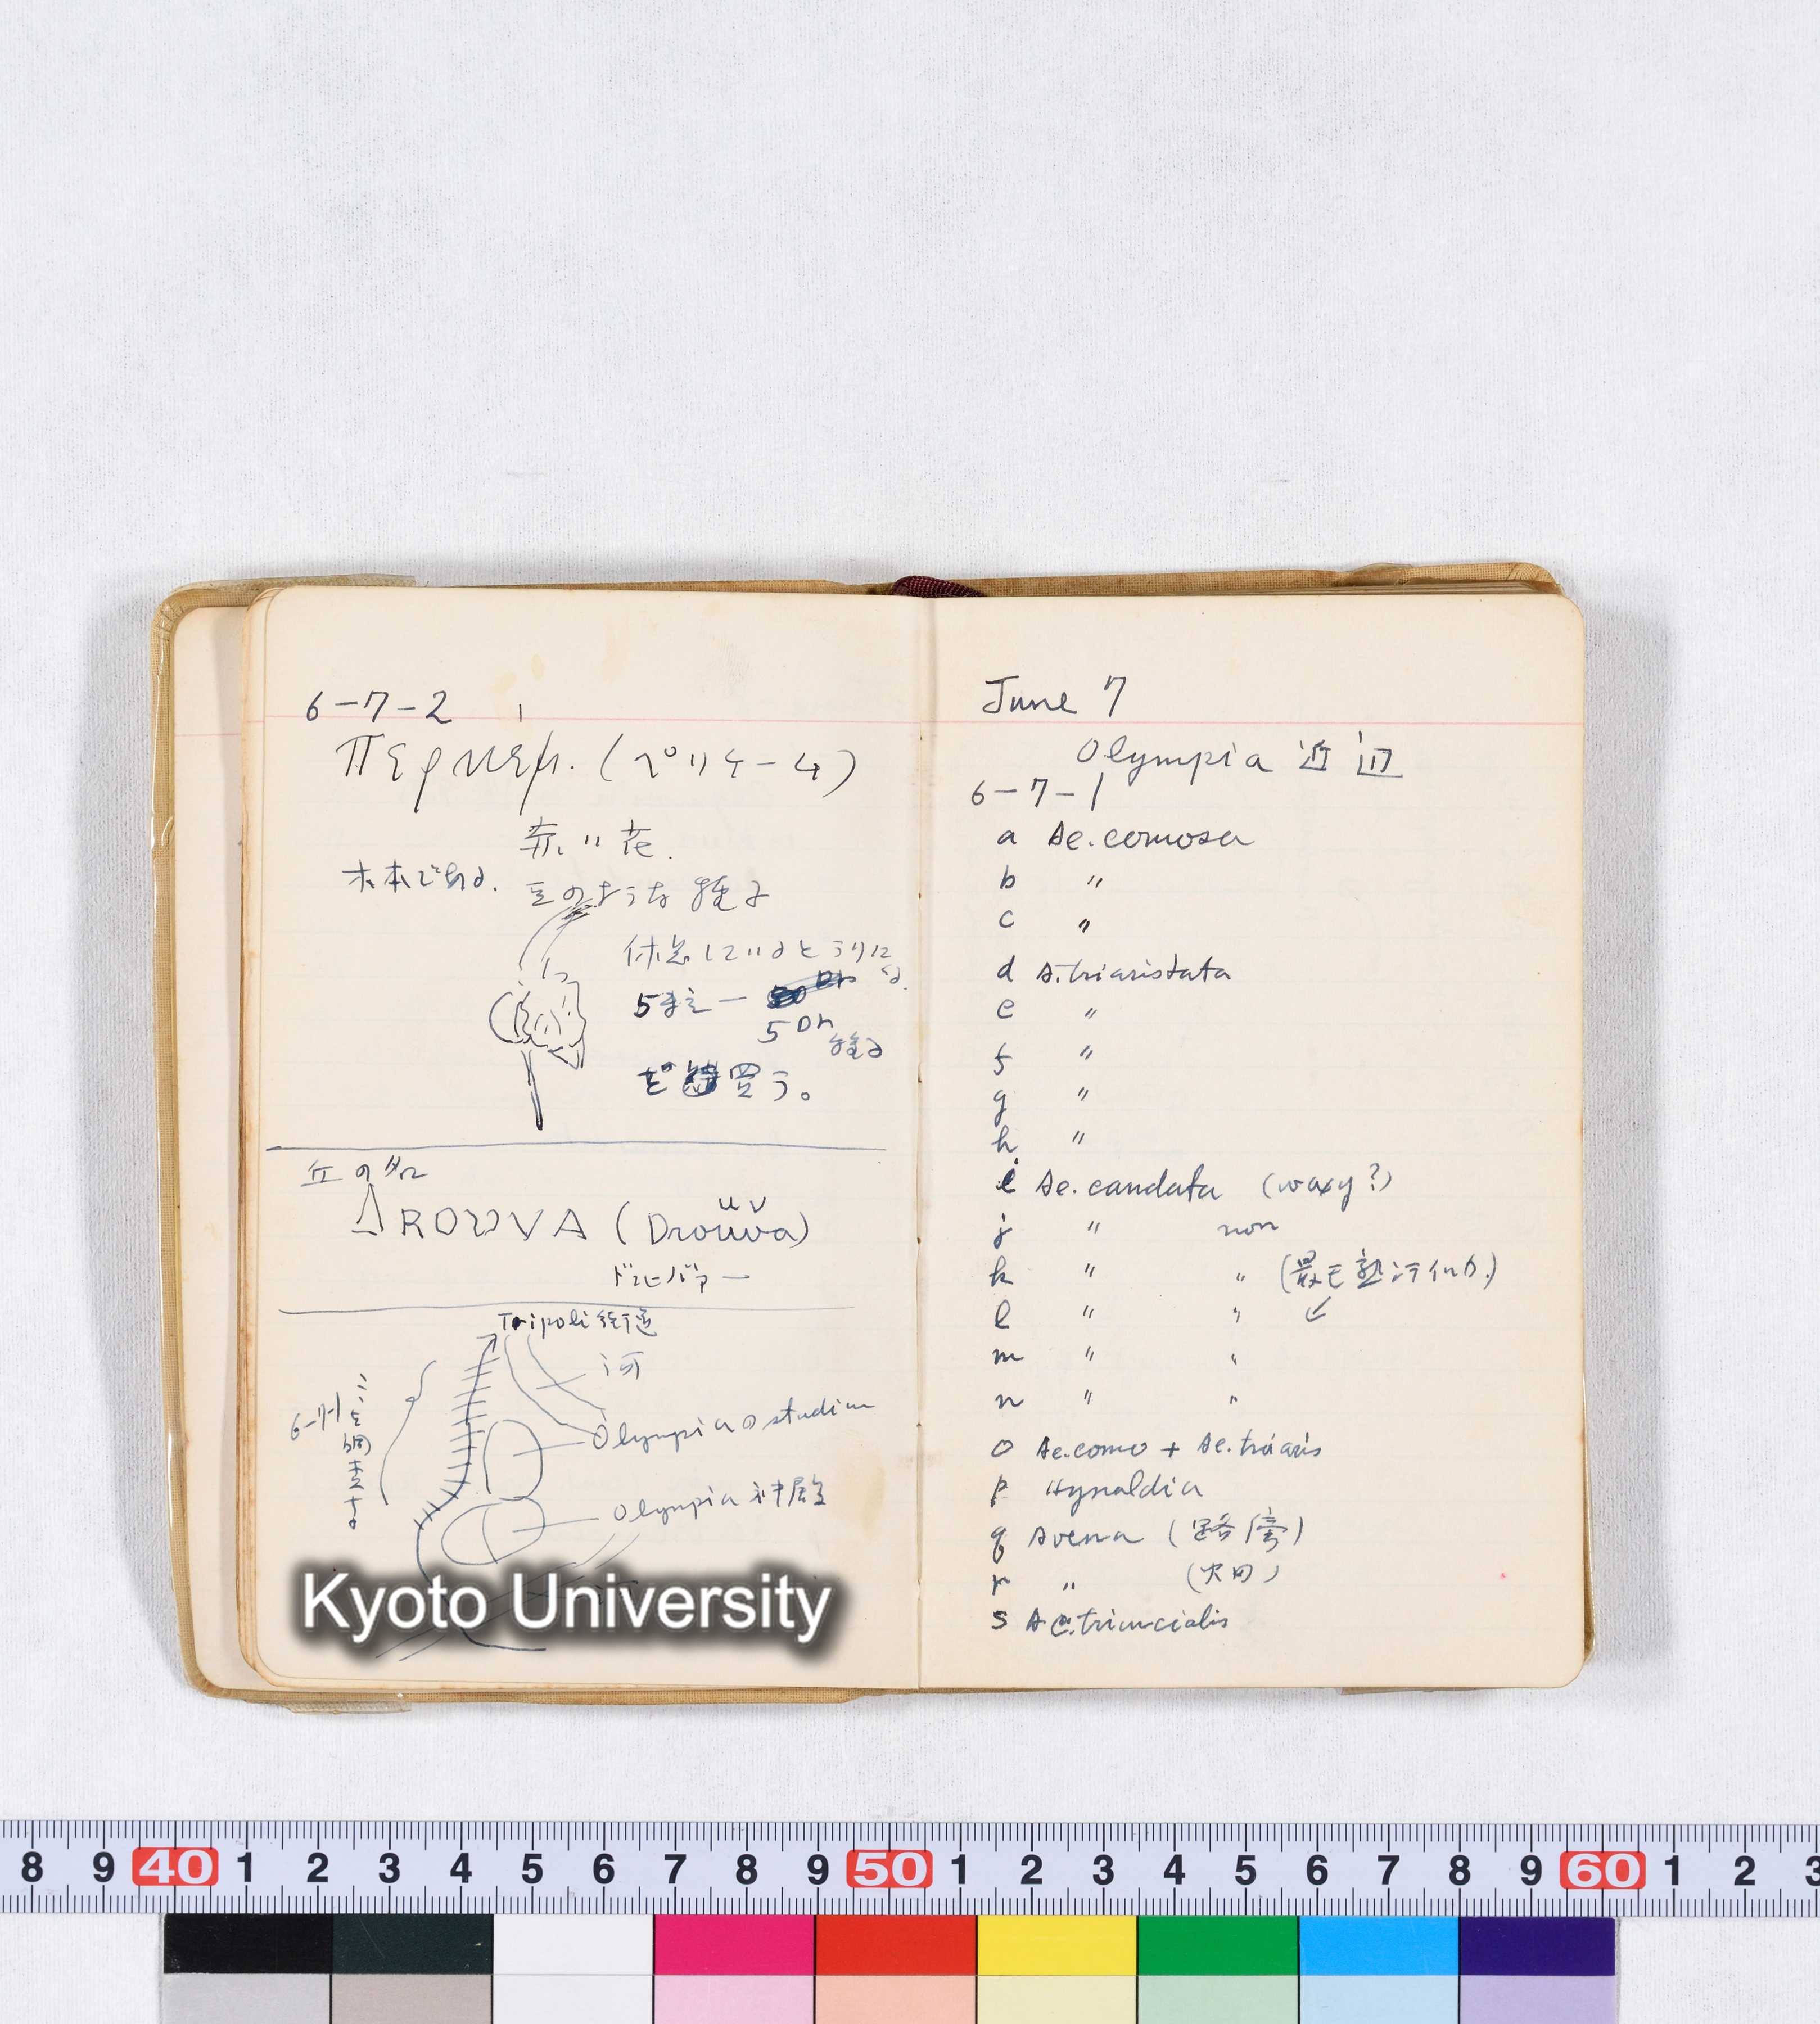 6-7-2
Περικεμ. (ペリケーム)
赤い花.
木本である.
豆のような種子
休息しているとうりに
くる.
5まえ一
5 Dr
種子
を買う。
丘の如
ΔROUVA (Droüva)
ドルバァー
Tripoli街道
河
6-7-1
ここを調査する
Olympiaのstadium
Olympia 神殿
Kyoto University
June 7
Olympia 近辺
6-7-1
a Ae. comosa
b 〃
c 〃
d A. triaristata
e 〃
f 〃
g 〃
h 〃
i Ae. caudata (waxy?)
j 〃 non
k 〃 〃 (最モ熟シテイルカ.)
l 〃 〃 ↙
m 〃 〃
n 〃 〃
o Ae. como + Ae. triaris
p Hynaldia
q Avena (路傍)
r 〃 (火田)
s Ae. triuncialis
8 9 40 1 2 3 4 5 6 7 8 9 50 1 2 3 4 5 6 7 8 9 60 1 2 3